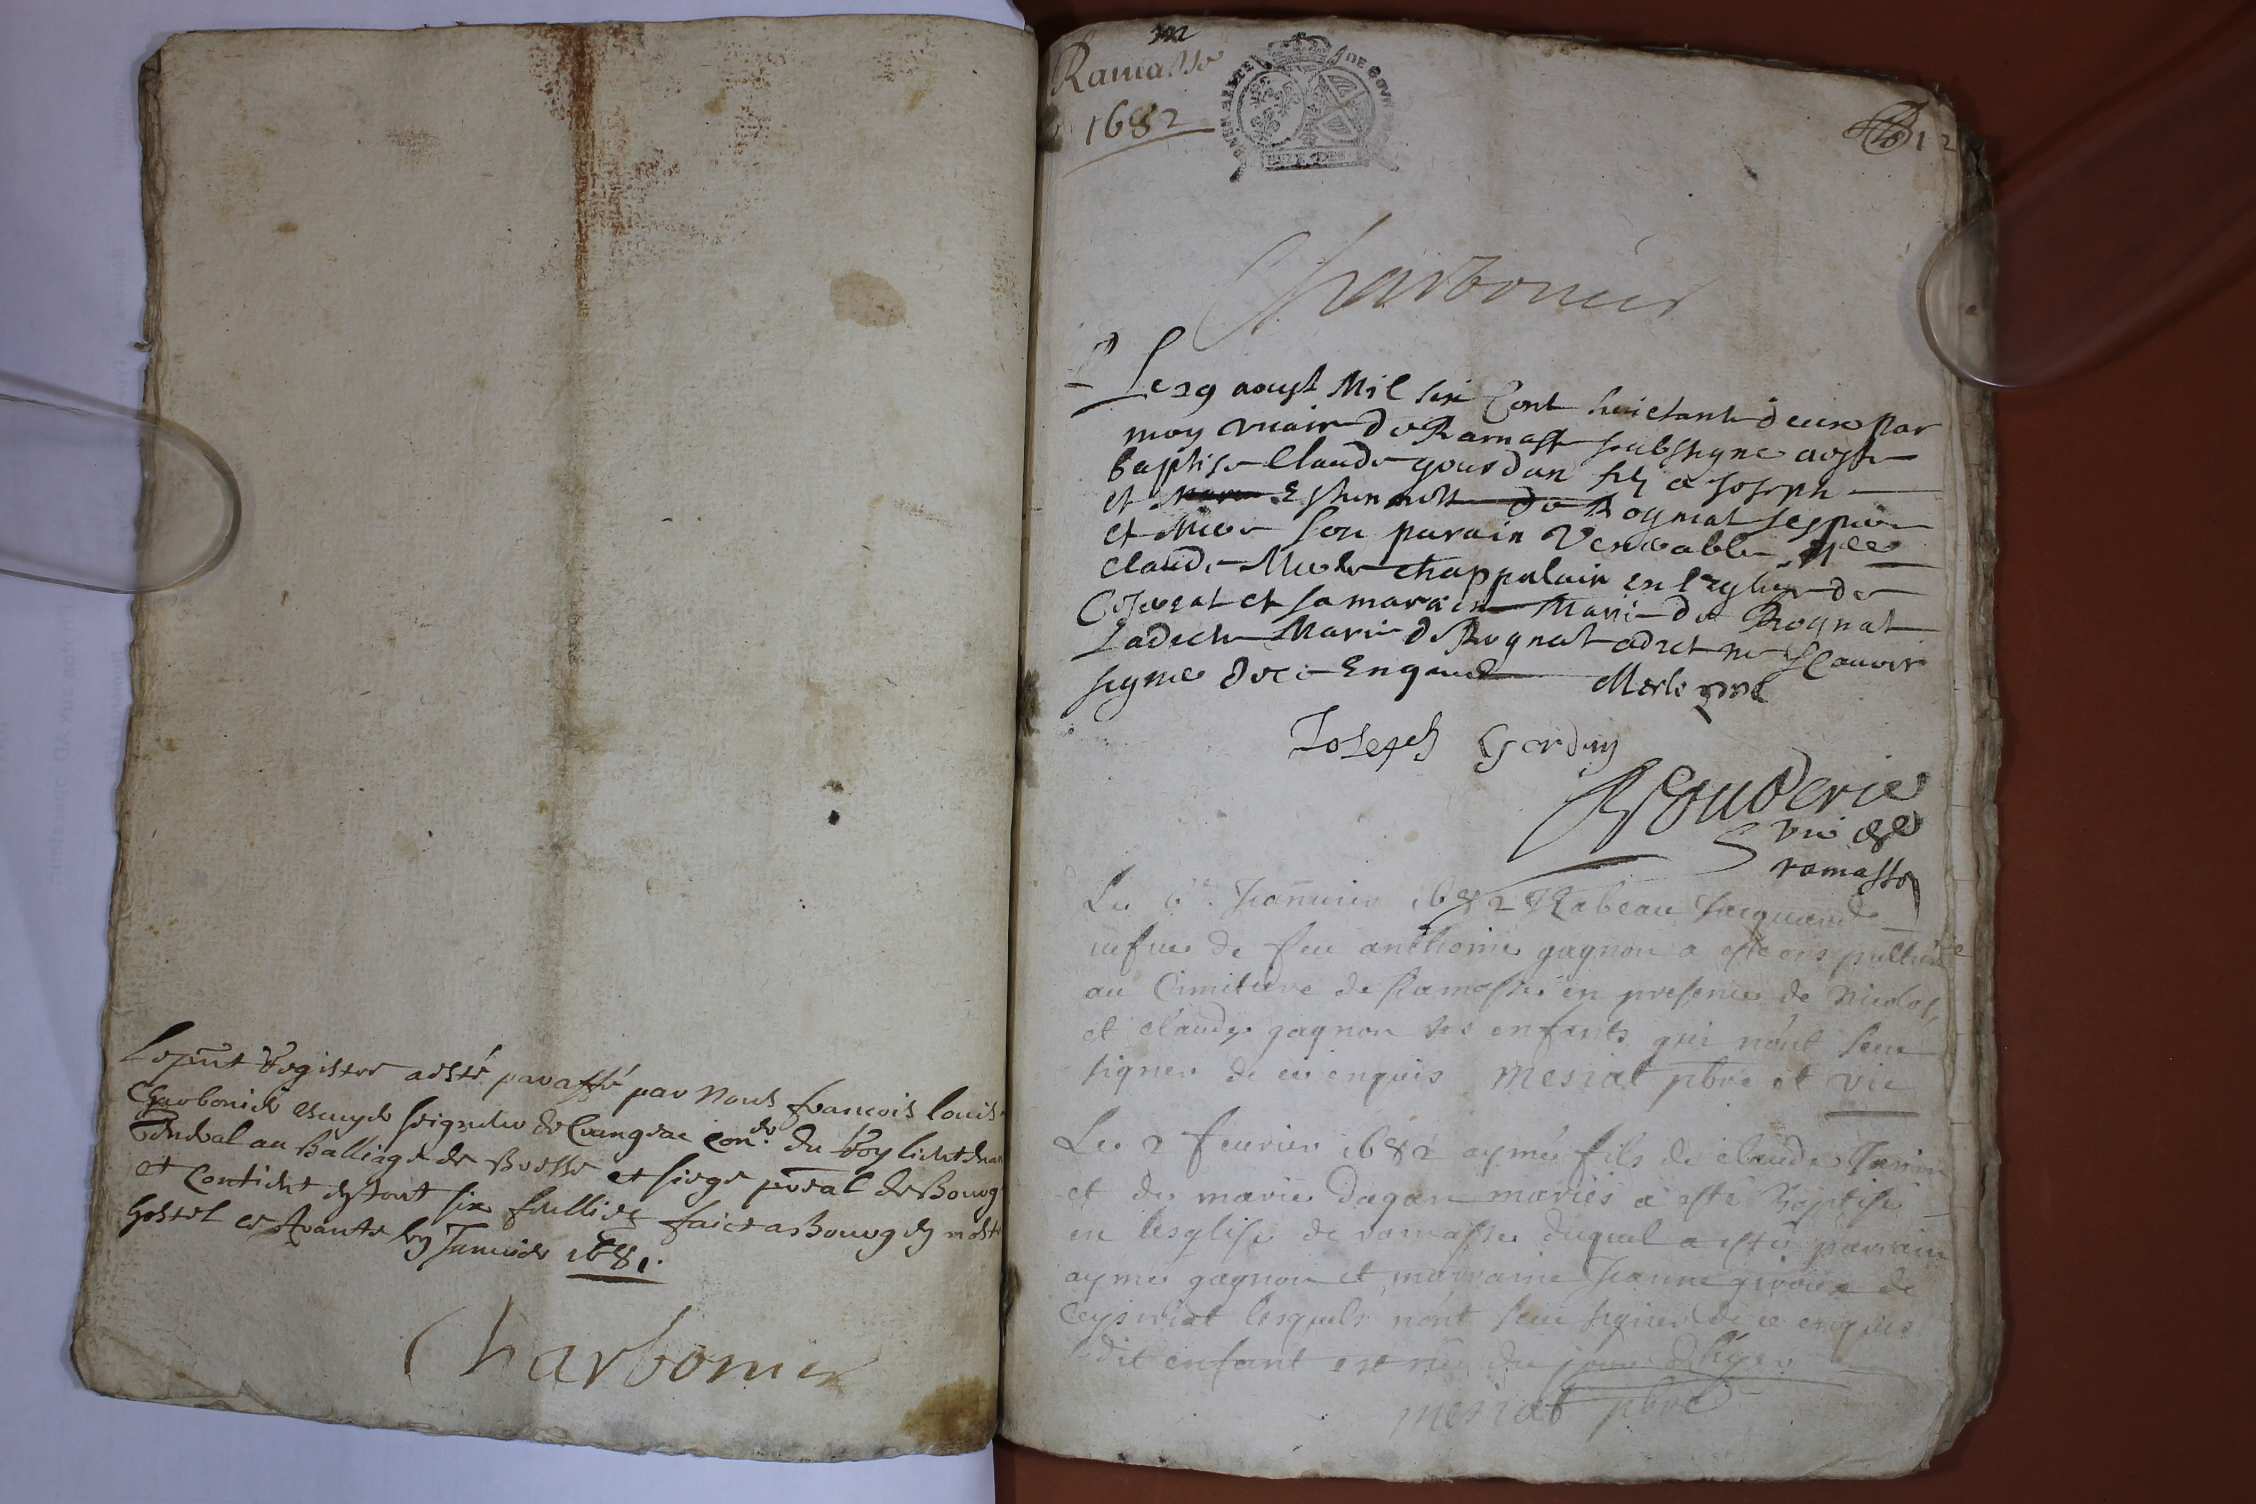 Le pnt Registre a esté paraffé par Nous francois louis
Charbonier escuyer seigneur de Crangeac con.er du Roy lieutenan
General au Balliage de Bresse et siege pñral de Bourg
et Contient en tout six feullies faict a Bourg en nostr
hostel ce Janvier 1681.
Charbonier
Ramasse
1682
12
Charbonier
Le 29 aoust Mil six Cent huictante deux par
moy vicaire de Ramasse soubsigne a este
baptise Claude gourdan filz a Joseph
et Estiennette de Rognat ses pere
et Mere son parain Venerable Mre
Claude Merle chappelain en l'eglise de
Coserat et sa maraine Marie de Rognat
Ladicte Marie de Rognat a dict ne scavoir
signe de ce Enquise Merle pbre
Joseph Gordan
vic de
ramasse
Le 6e Janvier 1682 Isabeau Jacquand
vefue de feu anthoine gagnon a este ensepulturée
au Cimitiere de Ramasse en presence de Nicolas
et claude gagnon ses enfants qui n'ont sceu
signer de ce enquis mesiat pbre et vic
Le 2 feurier 1682 aymé fils de claude
et de marie dagan mariés a esté Baptisé
en lesglise de ramasse duquel a esté parrain
aymé gagnon et marraine Jeanne de
Ceysiriat lesquels n'ont sceu signer de ce enquis
ledit enfant est né du jour d'hyer
mesiat pbre